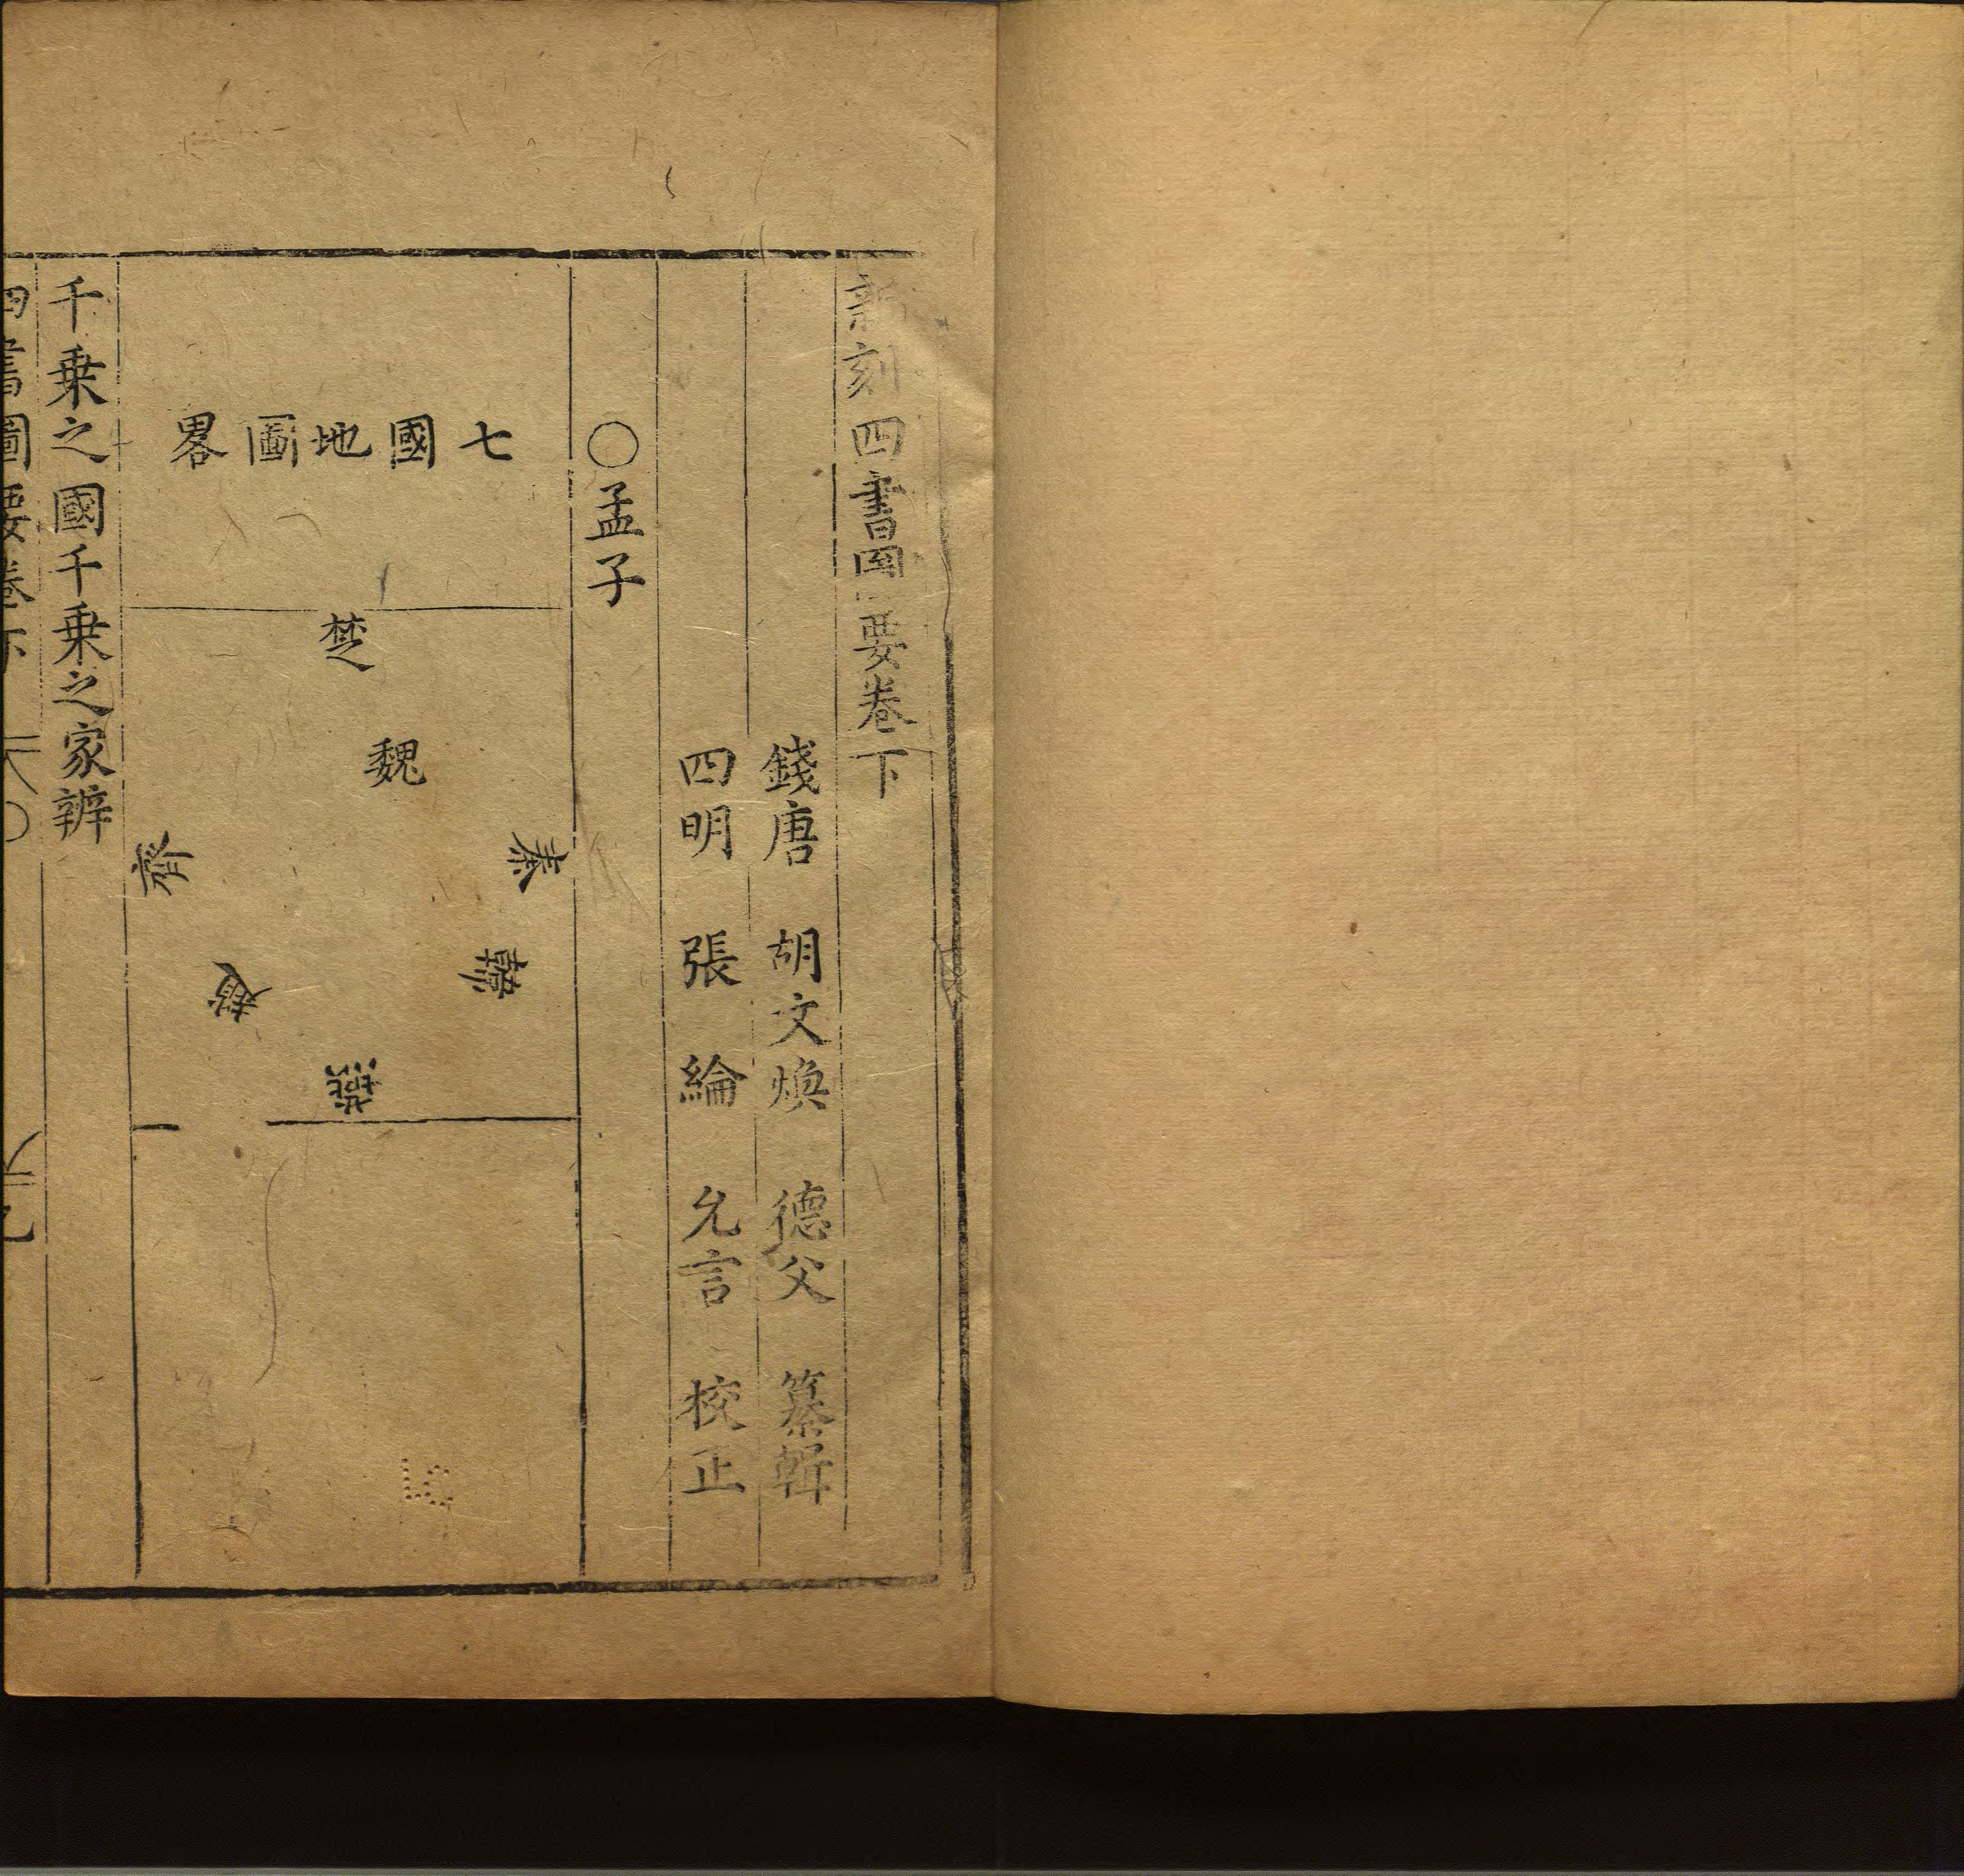 新刻四書圖要卷下
錢唐 胡文煥 德父 纂輯
四明 張 綸 允言 校正
○孟子
七國地圖畧
楚
魏
秦
齊
韓
趙
燕
千乗之國千乗之家辨
四書圖要卷下